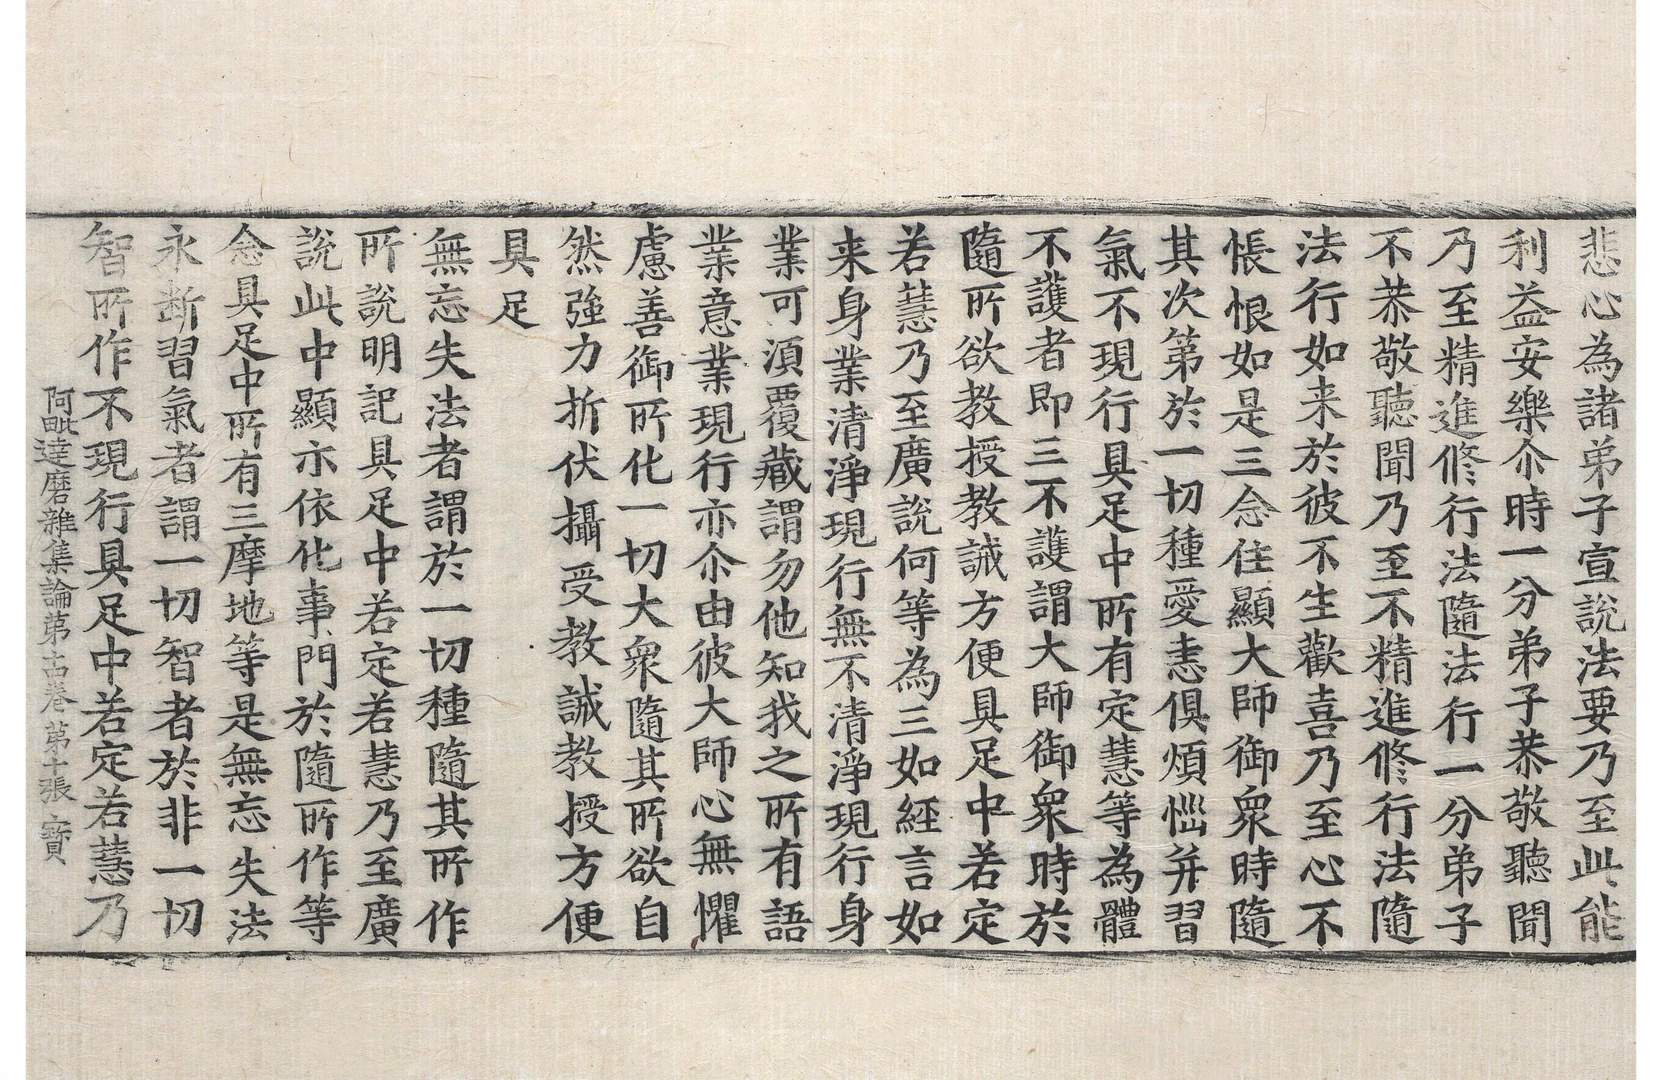 悲心為諸弟子宣說法要乃至此能
利益安樂尒時一分弟子恭敬聽聞
乃至精進修行法隨法行一分弟子
不恭敬聽聞乃至不精進修行法隨
法行如来於彼不生歡喜乃至心不
悵恨如是三念住顯大師御衆時隨
其次第於一切種愛恚俱煩惱并習
氣不現行具足中所有定慧等為體
不護者即三不護謂大師御衆時於
隨所欲教授教誡方便具足中若定
若慧乃至廣說何等為三如經言如
来身業清淨現行無不清淨現行身
業可須覆藏謂勿他知我之所有語
業意業現行亦尒由彼大師心無懼
慮善御所化一切大衆隨其所欲自
然強力折伏攝受教誡教授方便
具足
無忘失法者謂於一切種隨其所作
所說明記具足中若定若慧乃至廣
說此中顯示依化事門於隨所作等
念具足中所有三摩地等是無忘失法
永断習氣者謂一切智者於非一切
智所作不現行具足中若定若慧乃
阿毗達磨雜集論第十四卷 第十張 寶